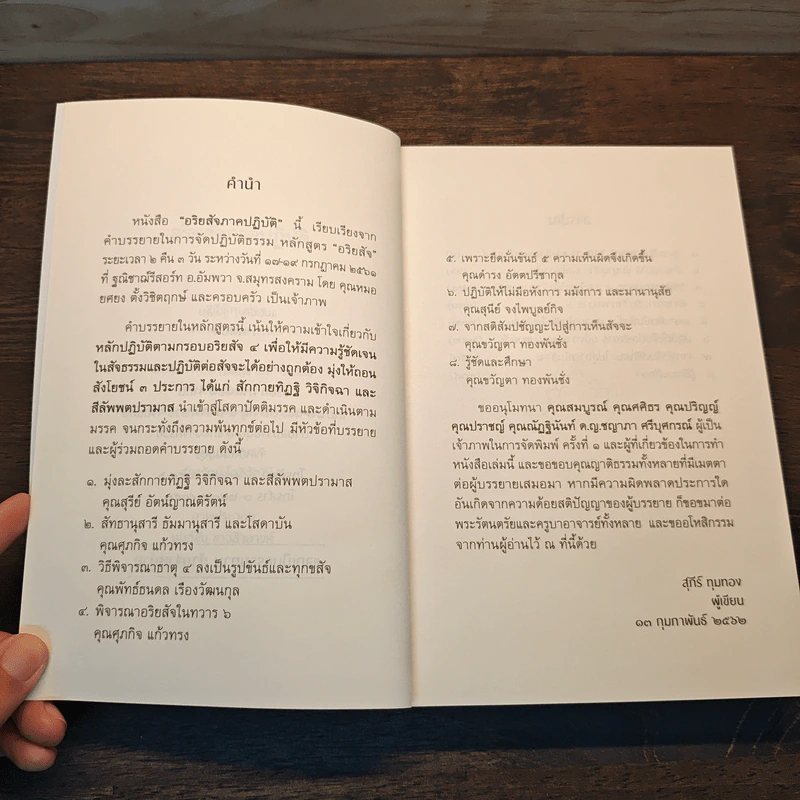 คำนำ
หนังสือ "อริยสัจภาคปฏิบัติ" นี้ เรียบเรียงจาก
คำบรรยายในการจัดปฏิบัติธรรม หลักสูตร "อริยสัจ"
ระยะเวลา ๒ คืน ๓ วัน ระหว่างวันที่ ๑๗-๑๙ กรกฎาคม ๒๕๖๑
ที่ ฐณิชาฌ์รีสอร์ท อ.อัมพวา จ.สมุทรสงคราม โดย คุณหมอ
ยศยง ตั้งวิชิตฤกษ์ และครอบครัว เป็นเจ้าภาพ
คำบรรยายในหลักสูตรนี้ เน้นให้ความเข้าใจเกี่ยวกับ
หลักปฏิบัติตามกรอบอริยสัจ ๔ เพื่อให้มีความรู้ชัดเจน
ในสัจธรรมและปฏิบัติต่อสัจจะได้อย่างถูกต้อง มุ่งให้ถอน
สังโยชน์ ๓ ประการ ได้แก่ สักกายทิฏฐิ วิจิกิจฉา และ
สีลัพพตปรามาส นำเข้าสู่โสดาปัตติมรรค และดำเนินตาม
มรรค จนกระทั่งถึงความพ้นทุกข์ต่อไป มีหัวข้อที่บรรยาย
และผู้ร่วมถอดคำบรรยาย ดังนี้
๑. มุ่งละสักกายทิฏฐิ วิจิกิจฉา และสีลัพพตปรามาส
คุณสุรีย์ อัตน์ญาณติรัตน์
๒. สัทธานุสารี ธัมมานุสารี และโสดาบัน
คุณศุภกิจ แก้วทรง
๓. วิธีพิจารณาธาตุ ๔ ลงเป็นรูปขันธ์และทุกขสัจ
คุณพัทธ์ธนดล เรืองวัฒนกุล
๔. พิจารณาอริยสัจในทวาร ๖
คุณศุภกิจ แก้วทรง
๕. เพราะยึดมั่นขันธ์ ๕ ความเห็นผิดจึงเกิดขึ้น
คุณดำรง อัตตปรีชากุล
๖. ปฏิบัติให้ไม่มีอหังการ มมังการ และมานานุสัย
คุณสุนีย์ จงไพบูลย์กิจ
๗. จากสติสัมปชัญญะไปสู่การเห็นสัจจะ
คุณขวัญตา ทองพันชั่ง
๘. รู้ชัดและศึกษา
คุณขวัญตา ทองพันชั่ง
ขออนุโมทนา คุณสมบูรณ์ คุณศศิธร คุณปริญญ์
คุณปราชญ์ คุณณัฏฐินันท์ ด.ญ.ชญาภา ศรีบุศกรณ์ ผู้เป็น
เจ้าภาพในการจัดพิมพ์ ครั้งที่ ๑ และผู้ที่เกี่ยวข้องในการทำ
หนังสือเล่มนี้ และขอขอบคุณญาติธรรมทั้งหลายที่มีเมตตา
ต่อผู้บรรยายเสมอมา หากมีความผิดพลาดประการใด
อันเกิดจากความด้อยสติปัญญาของผู้บรรยาย ก็ขอขมาต่อ
พระรัตนตรัยและครูบาอาจารย์ทั้งหลาย และขออโหสิกรรม
จากท่านผู้อ่านไว้ ณ ที่นี้ด้วย
สุภีร์ ทุมทอง
ผู้เขียน
๑๓ กุมภาพันธ์ ๒๕๖๒